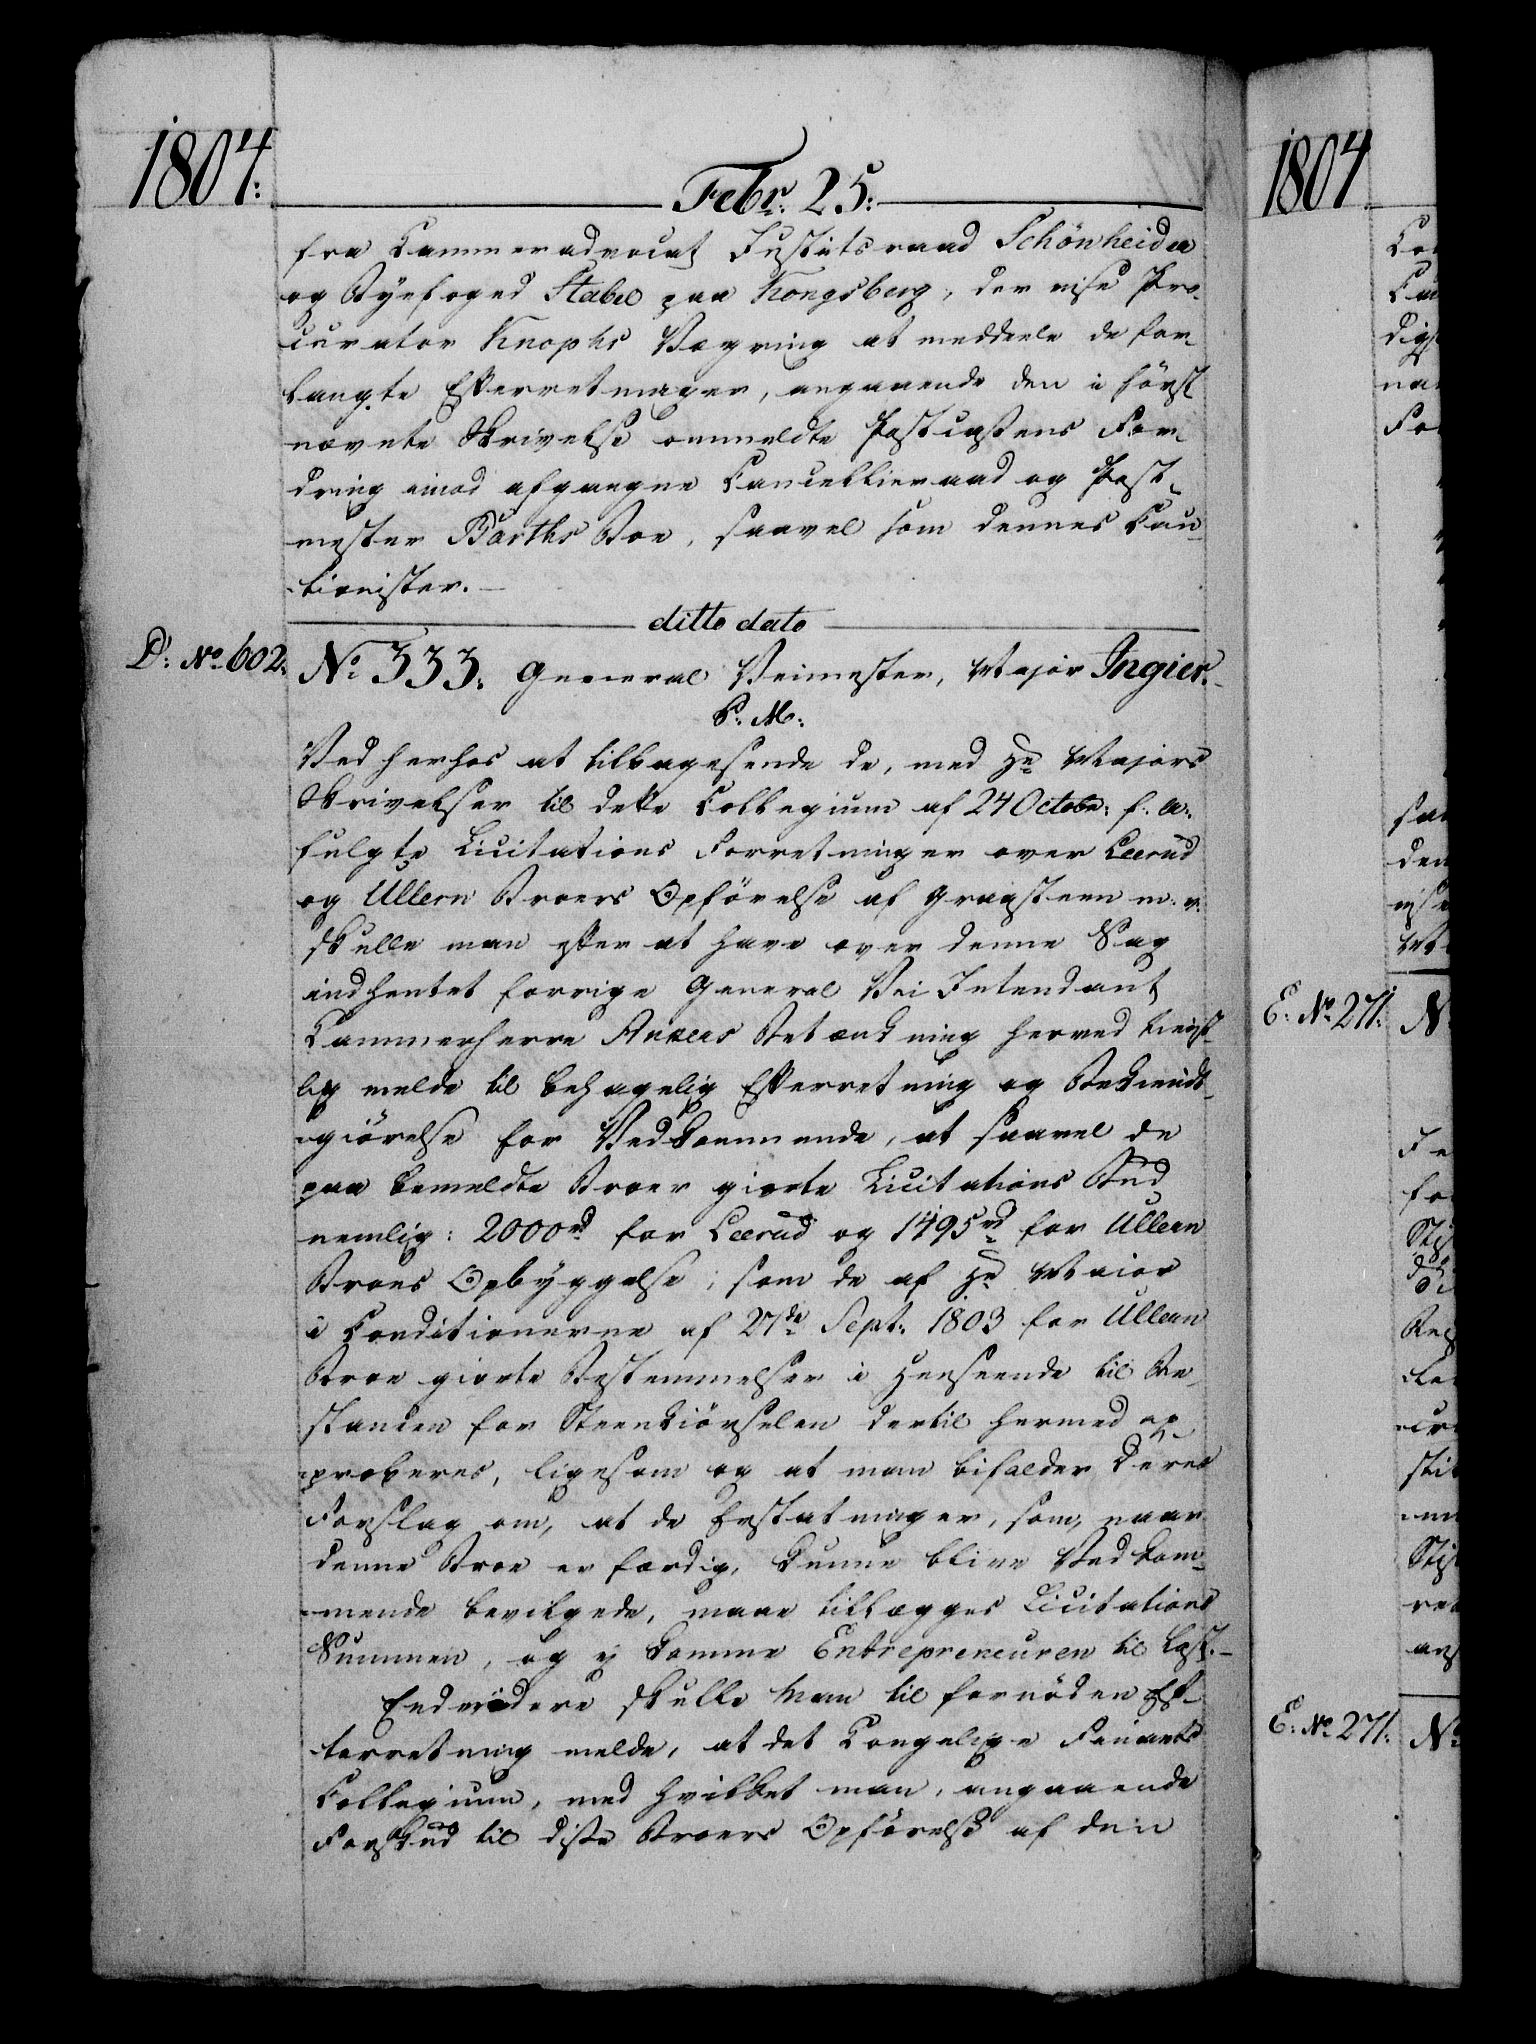 1804.
Febr. 25:
fra Kammeradvocat Justitsraad Schönheider
og Byefoged Stabel paa Kongsberg, der vise Pro-
curator Knophs Vægring at meddeele de for-
langte Efterretninger, angaaende den i först
nævnte Skrivelse ommeldte Postcassens For-
dring imod afgangne Cancellieraad og Post-
mester Barths Boe, saavel som dennes Cau-
tionister.
ditto dato
D: No. 602. No. 333. General Veimester, Major Ingier.
P. M:
Ved herhos at tilbagesende de, med Hr Majors
Skrivelser til dette Collegium af 24 Octobr: f. A:
fulgte Licitations Forretninger over Leerud
og Ullern Broers Opförelse af Graasteen m: v:
skulle man efter at have over denne Sag
indhentet forrige General Vei Intendant
Kammerherre Ankers Betænkning herved tienst-
lig melde til behagelig Efterretning og Bekiendt-
giörelse for Vedkommende, at saavel de
paa bemeldte Broer giorte Licitations Bud
nemlig: 2000 rd for Leerud og 1495 rd for Ullern
Broes Opbyggelse, som de af Hr Maior
i Conditionerne af 27de Sept: 1803 for Ullern
Broe giorte Bestemmelser i Henseende til Di-
stancen for Steenkiörselen dertil hermed ap-
proberes, ligesom og at man bifalder Deres
Forslag om, at de Erstatninger, som, naar
denne Broe er færdig, kunne blive Vedkom-
mende bevilgede, maae tillægges Licitations
Summen, og ei komme Entrepreneuren til Last.
Endvidere skulle man til fornöden Ef-
terretning melde, at det Kongelige Finants
Collegium, med hvilket man, angaaende
Forskud til disse Broers Opförelse af den
1804
E: No. 271:
E: No. 271: